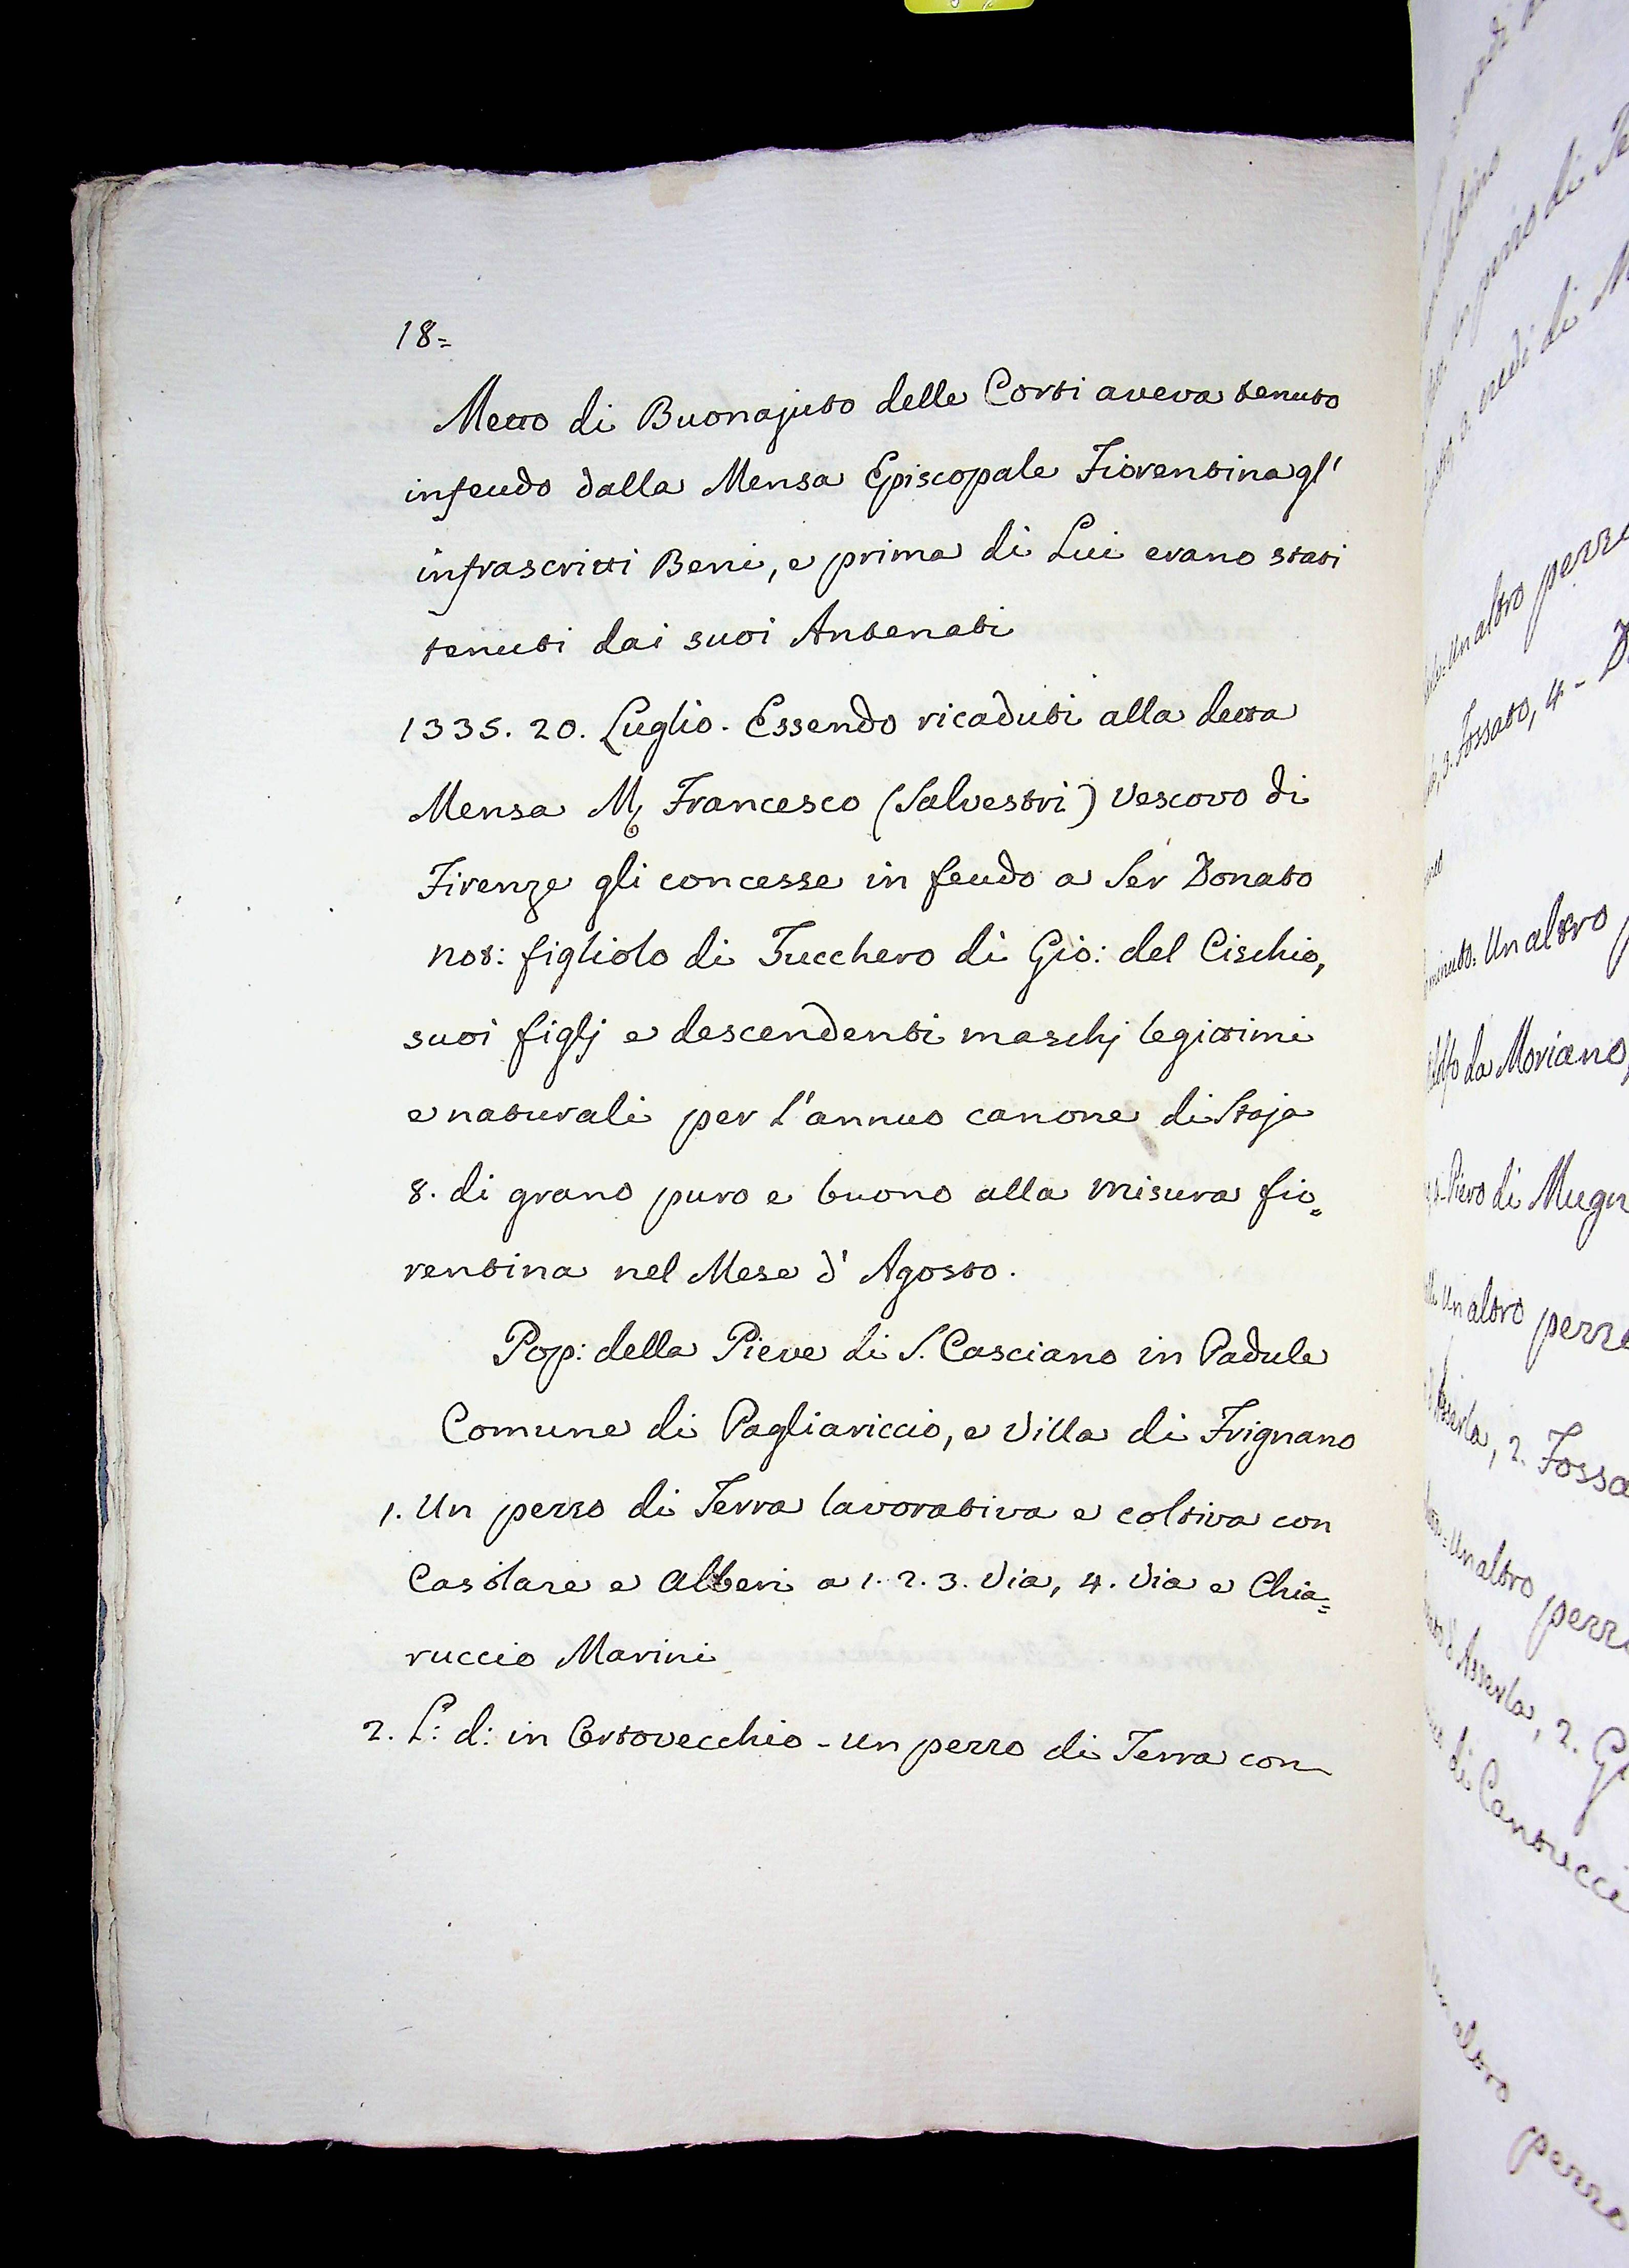 18=
Metto di Buonajuto delle Corti aveva tenuto
infeudo dalla Mensa Episcopale Fiorentina gl'
infrascritti Beni, e prima di Lui erano stati
tenuti dai suoi Antenati
1335. 20. Luglio. Essendo ricaduti alla detta
Mensa M. Francesco (Salvestri) Vescovo di
Firenze gli concesse in feudo a Ser Donato
not: figliolo di Tucchero di Gio: del Cischio,
suoi figlj e descendenti maschj legittimi
e naturali per l'annuo canone di Staja
8. di grano puro e buono alla misura fio=
rentina nel Mese d'Agosto.
Pop: della Pieve di S. Casciano in Padule
Comune di Pagliariccio, e Villa di Frignano
1. Un pezzo di Terra lavorativa e coltiva con
Casolare e Alberi a 1. 2. 3. Via, 4. Via e Chia=
ruccio Marini
2. L: d: in Ortovecchio - un pezzo di Terra con
pezzo di
eredi di
Un altro pezzo
3. Fossato, 4 -
Un altro
da Moriano,
Piero di Mugn
Un altro pezzo
2. Fossa
Un altro pezzo
d'Asserla, 2. G
di Cantucci
altro pezzo